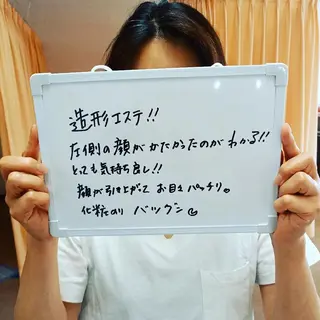 造形エステ!!
左側の顔がかたかったのがわかる!!
とても気持ち良し!!
顔が引き上がって お目々パッチリ。
化粧のり バツグン